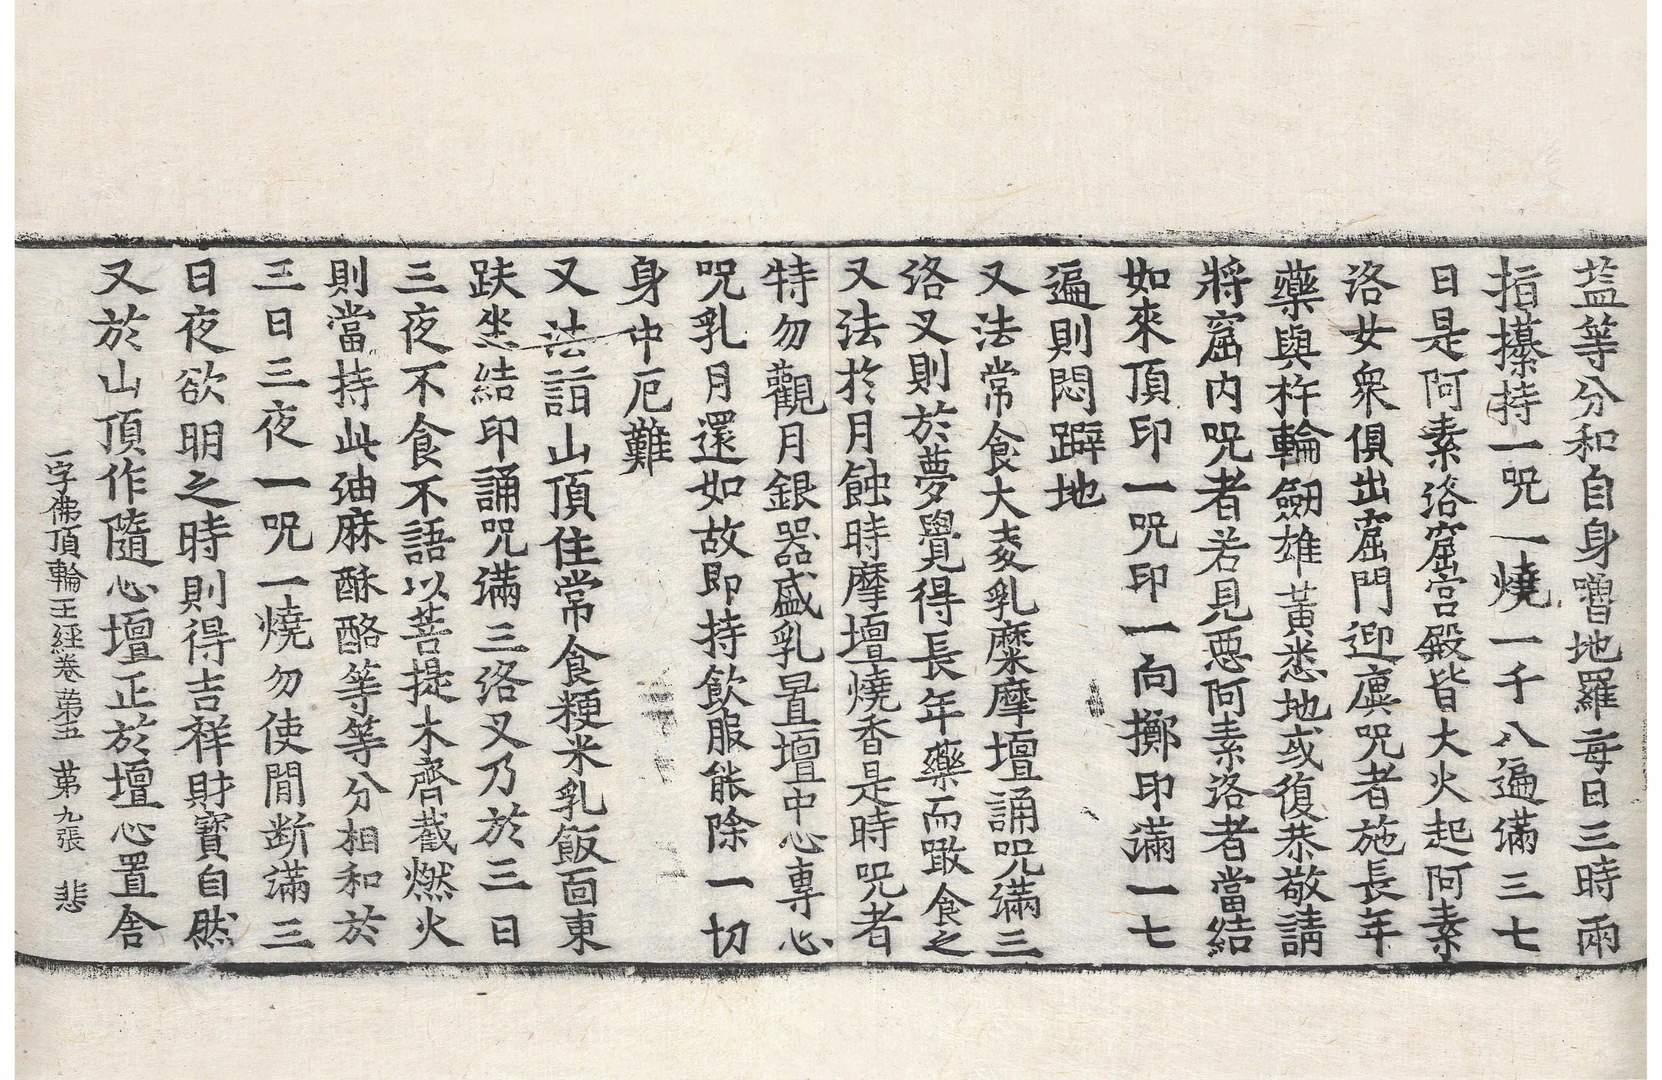 塩等分和自身嚕地羅每日三時兩
指攥持一呪一燒一千八遍滿三七
日是阿素洛窟宮殿皆大火起阿素
洛女衆俱出窟門迎虞呪者施長年
藥與杵輪劒雄黃悉地或復恭敬請
將窟內呪者若見惡阿素洛者當結
如來頂印一呪印一向擲印滿一七
遍則悶躃地
又法常食大麥乳糜摩壇誦呪滿三
洛叉則於夢覺得長年藥而噉食之
又法於月蝕時摩壇燒香是時呪者
特勿觀月銀器盛乳置壇中心專心
呪乳月還如故即持飲服能除一切
身中厄難
又法詣山頂住常食粳米乳飯面東
趺坐結印誦呪滿三洛叉乃於三日
三夜不食不語以菩提木齊截燃火
則當持此油麻酥酪等等分相和於
三日三夜一呪一燒勿使閒斷滿三
日夜欲明之時則得吉祥財寶自然
又於山頂作隨心壇正於壇心置舍
一字佛頂輪王經卷第五　第九張　悲